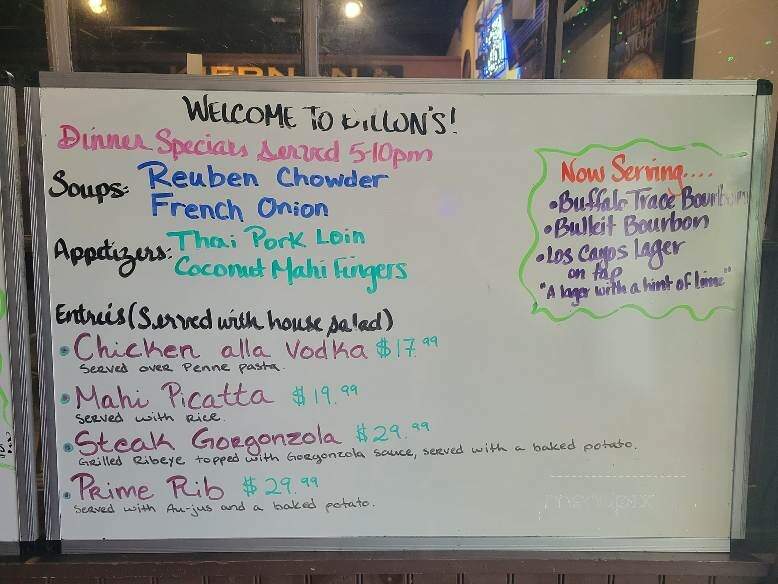 WELCOME TO DILLON'S!
Dinner Specials Served 5-10pm
Soups: Reuben Chowder
French Onion
Appetizers: Thai Pork Loin
Coconut Mahi Fingers
Entreis (Served with house salad)
• Chicken alla Vodka $17.99
Served over Penne pasta.
• Mahi Picatta $19.99
Served with rice.
• Steak Gorgonzola $29.99
Grilled Ribeye topped with Gorgonzola sauce, served with a baked potato.
• Prime Rib $29.99
Served with Au-jus and a baked potato.
Now Serving....
• Buffalo Trace Bourbon
• Bulleit Bourbon
• Los Cayos Lager
on tap
"A lager with a hint of lime"